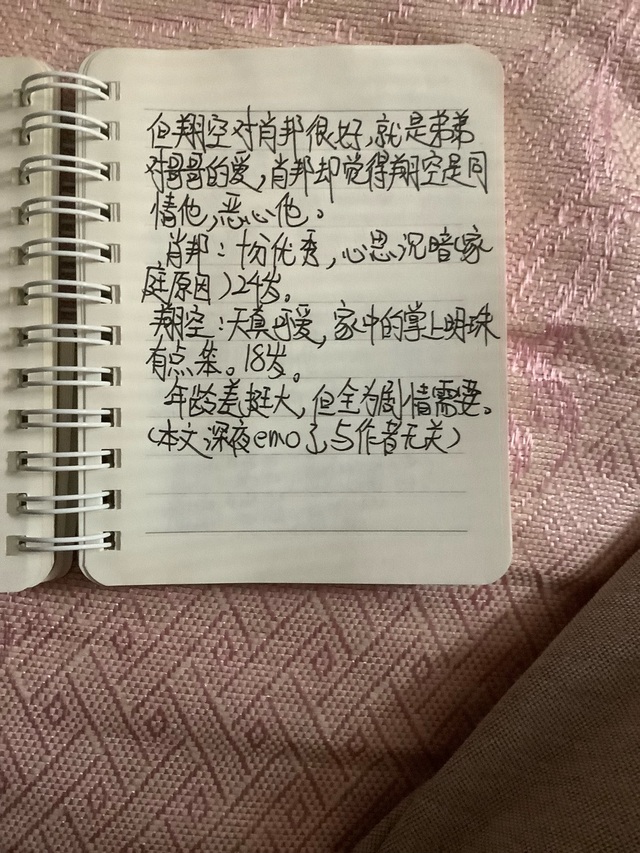 但翔空对肖邦很好,就是弟弟
对哥哥的爱,肖邦却觉得翔空是同
情他,恶心他。
肖邦:十分优秀,心思沉暗(家
庭原因)24岁。
翔空:天真可爱,家中的掌上明珠
有点笨。18岁。
年龄差挺大,但全为剧情需要。
(本文深夜emo了,与作者无关)